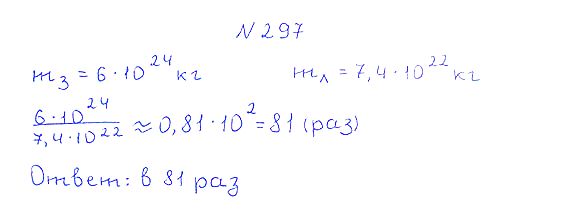 N297
m₃ = 6·10²⁴ кг m_Л = 7,4·10²² кг
6·10²⁴
7,4·10²² ≈ 0,81·10² = 81 (раз)
Ответ: в 81 раз